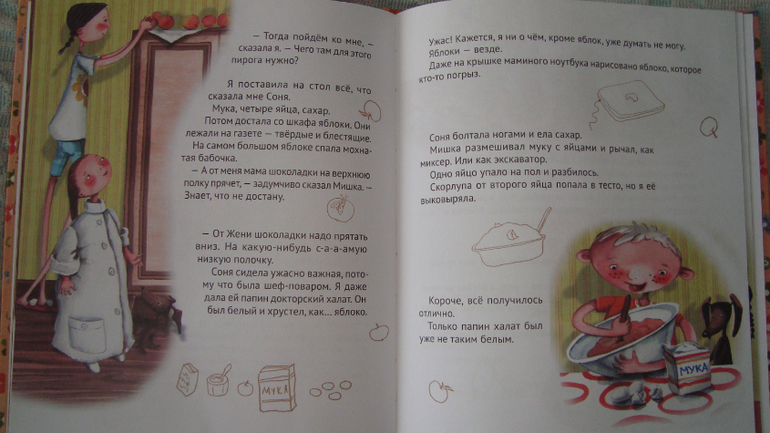 — Тогда пойдём ко мне, —
сказала я. — Чего там для этого
пирога нужно?
Я поставила на стол всё, что
сказала мне Соня.
Мука, четыре яйца, сахар.
Потом достала со шкафа яблоки. Они
лежали на газете — твёрдые и блестящие.
На самом большом яблоке спала мохна-
тая бабочка.
— А от меня мама шоколадки на верхнюю
полку прячет, — задумчиво сказал Мишка. —
Знает, что не достану.
— От Жени шоколадки надо прятать
вниз. На какую-нибудь с-а-а-амую
низкую полочку.
Соня сидела ужасно важная, пото-
му что была шеф-поваром. Я даже
дала ей папин докторский халат. Он
был белый и хрустел, как... яблоко.
МУКА
Ужас! Кажется, я ни о чём, кроме яблок, уже думать не могу.
Яблоки — везде.
Даже на крышке маминого ноутбука нарисовано яблоко, которое
кто-то погрыз.
Соня болтала ногами и ела сахар.
Мишка размешивал муку с яйцами и рычал, как
миксер. Или как экскаватор.
Одно яйцо упало на пол и разбилось.
Скорлупа от второго яйца попала в тесто, но я её
выковыряла.
Короче, всё получилось
отлично.
Только папин халат был
уже не таким белым.
МУКА